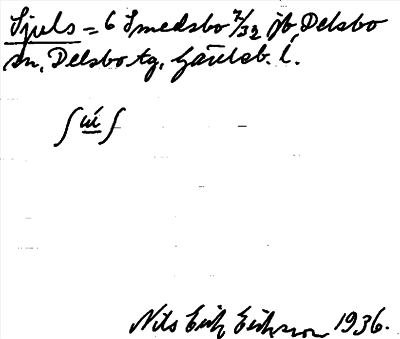 Sjuls = 6 Smedsbo 7/32 jb, Delsbo
sn, Delsbo tg, Gävleb. l.
ʃɯ́ʃ
Nils Erik Eriksson 1936.